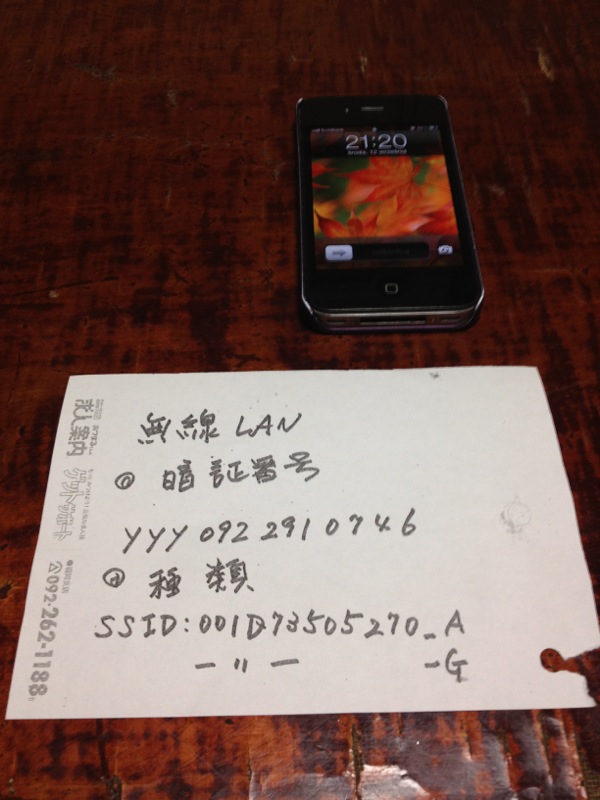 21:20
無線 LAN
@ 暗証番号
YYY 092 291 0746
@ 種類
SSID:001D73505270_A
— 〃 — _G
求人案内
ゲットサポート
092-262-1188